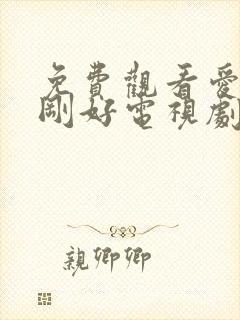 免費觀看愛
剛好電視劇
親卿卿